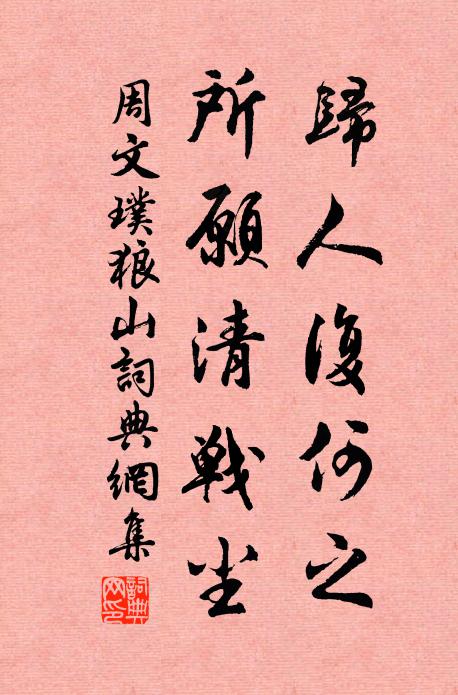 歸人復何之
所願清戰尘
周文璞狼山詞典網集
詞典網印